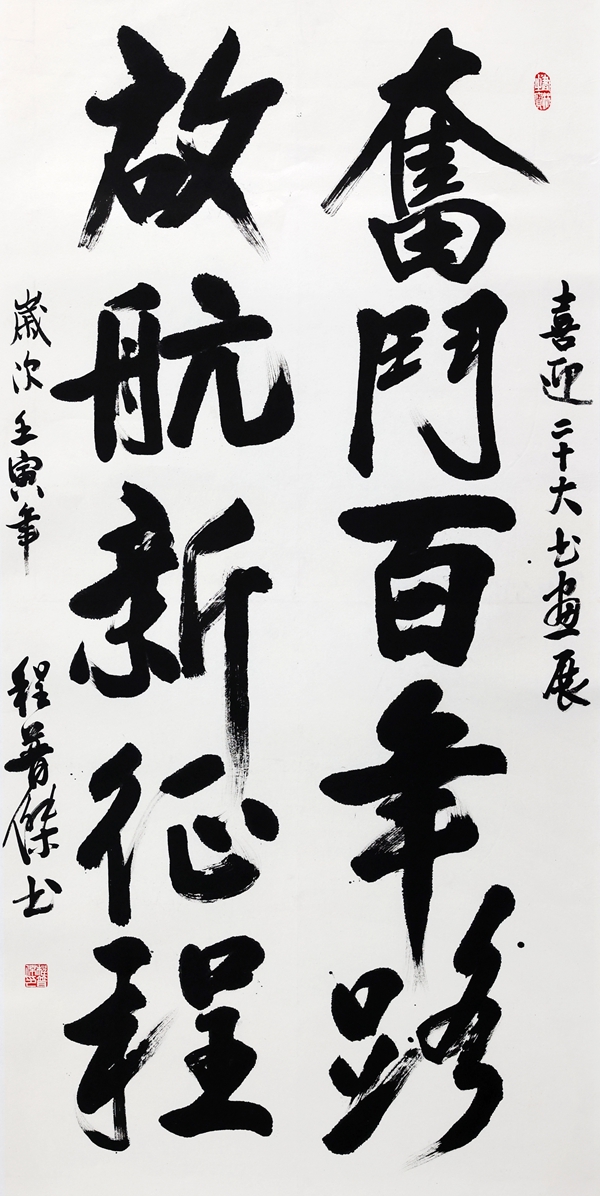 喜迎二十大书畫展
奮鬥百年路
啟航新征程
歲次壬寅年 程普傑书